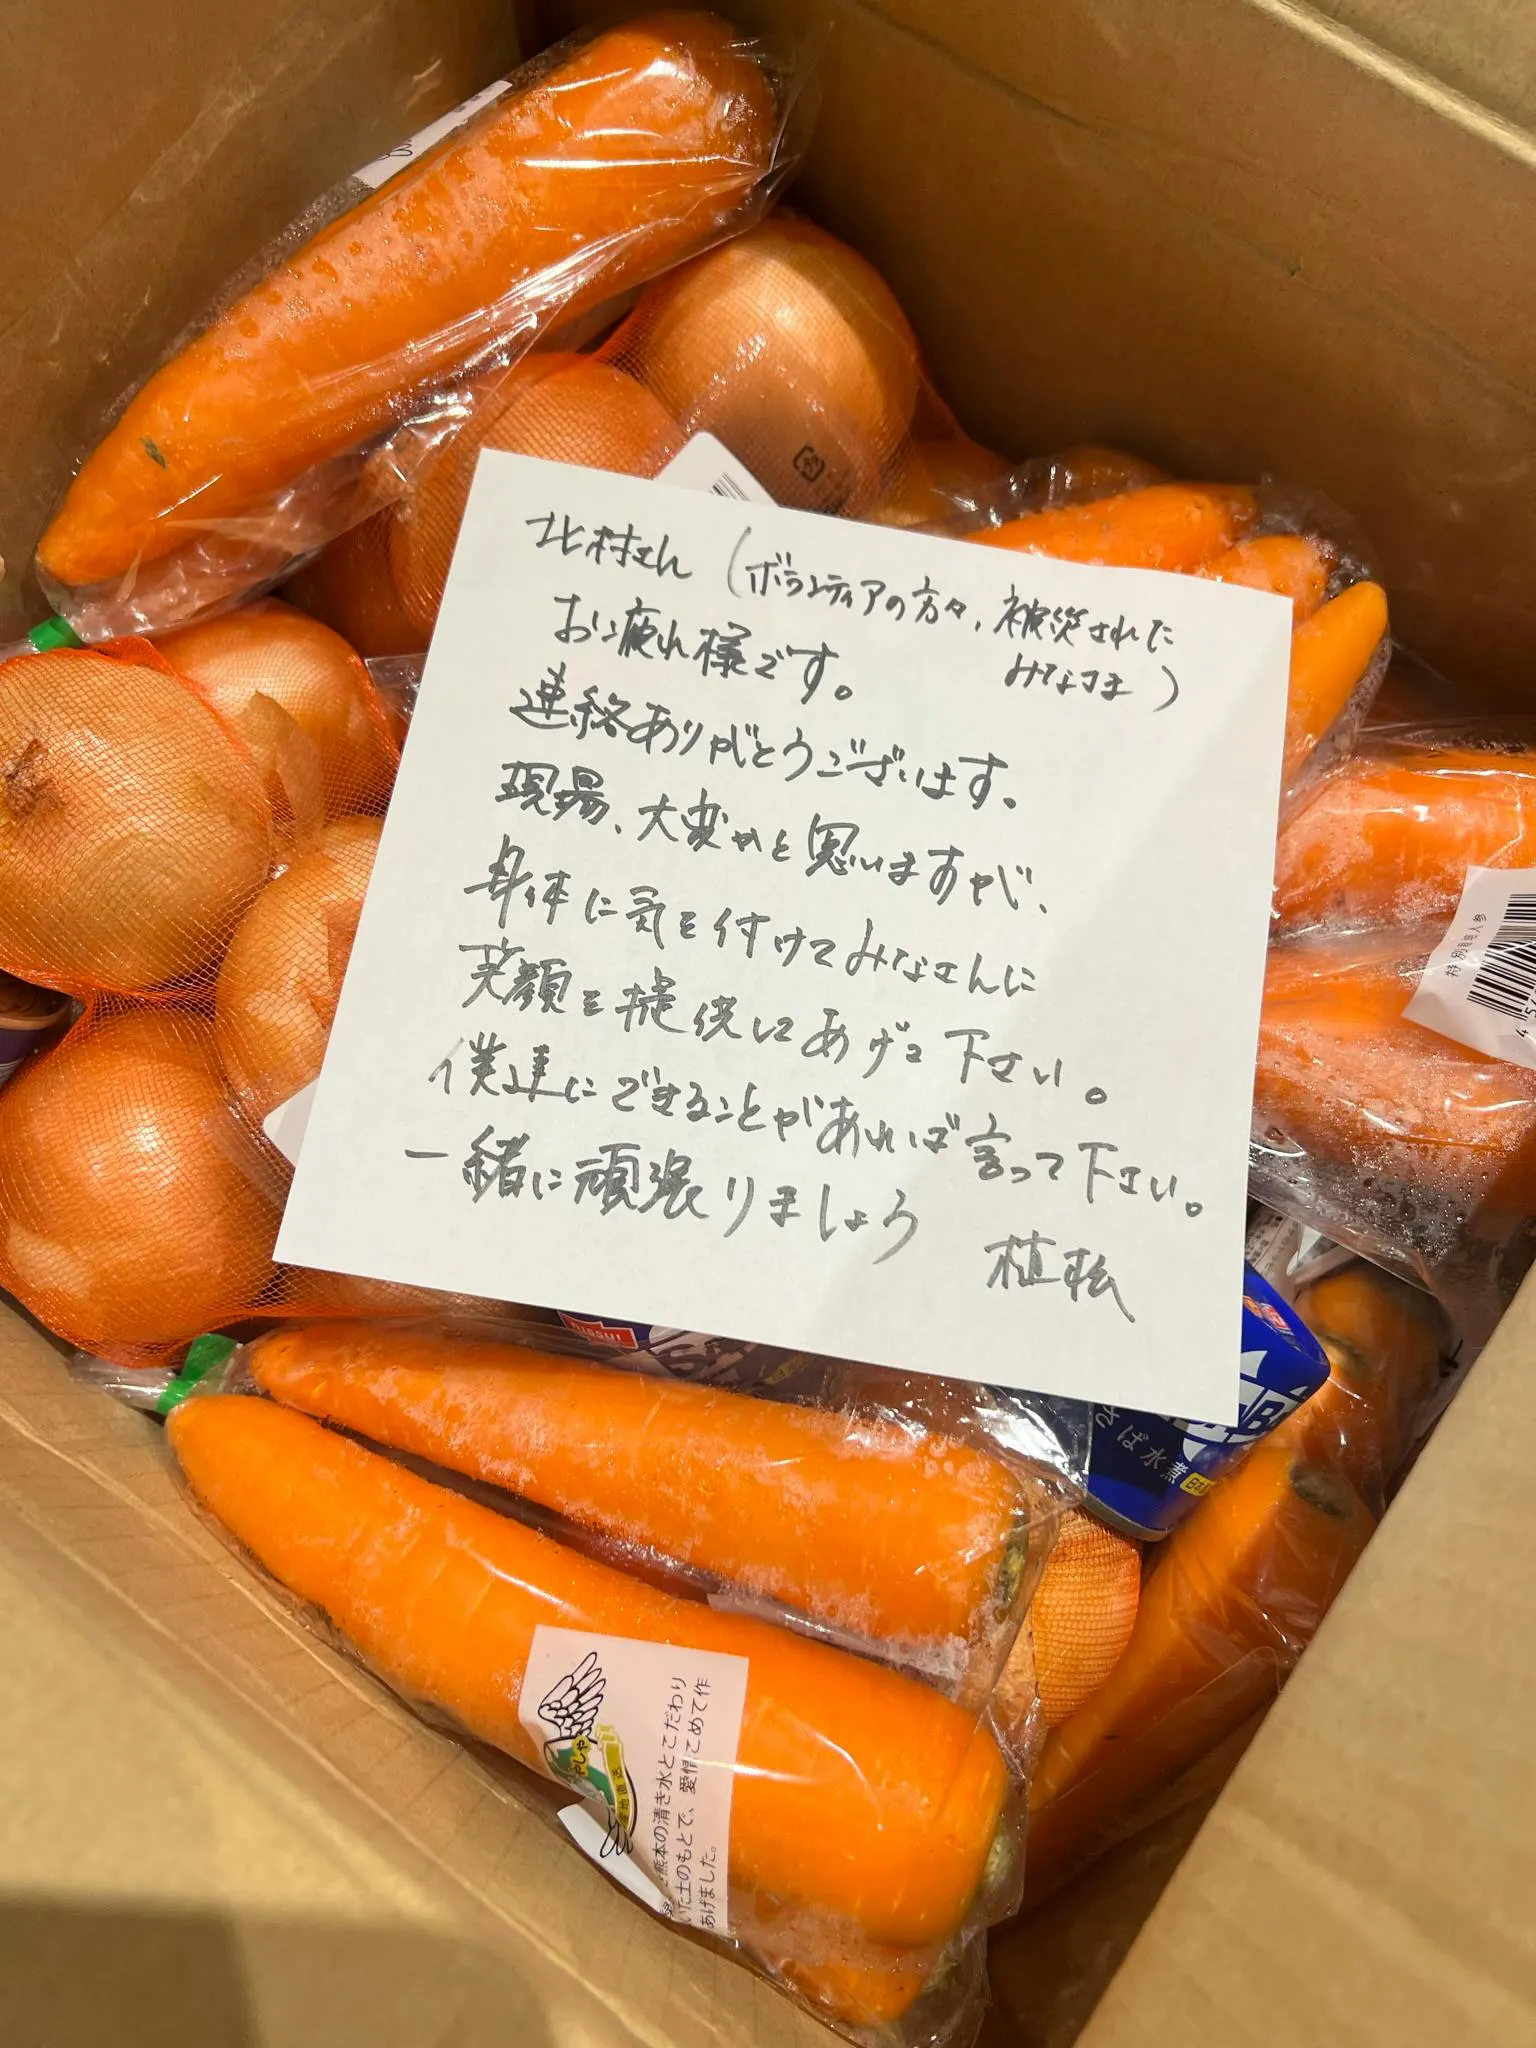 北村さん(ボランティアの方々、被災された
みなさま)
お疲れ様です。
連絡ありがとうございます。
現場、大変かと思いますが、
身体に気を付けてみなさんに
笑顔を提供してあげて下さい。
僕達にできることがあれば言って下さい。
一緒に頑張りましょう
植松
特別栽培人参
NISSUI
さば水煮
日本
やしゃ
産地直送
熊本の清き水とこだわり
いた土のもとで、愛情こめて作
あげました。